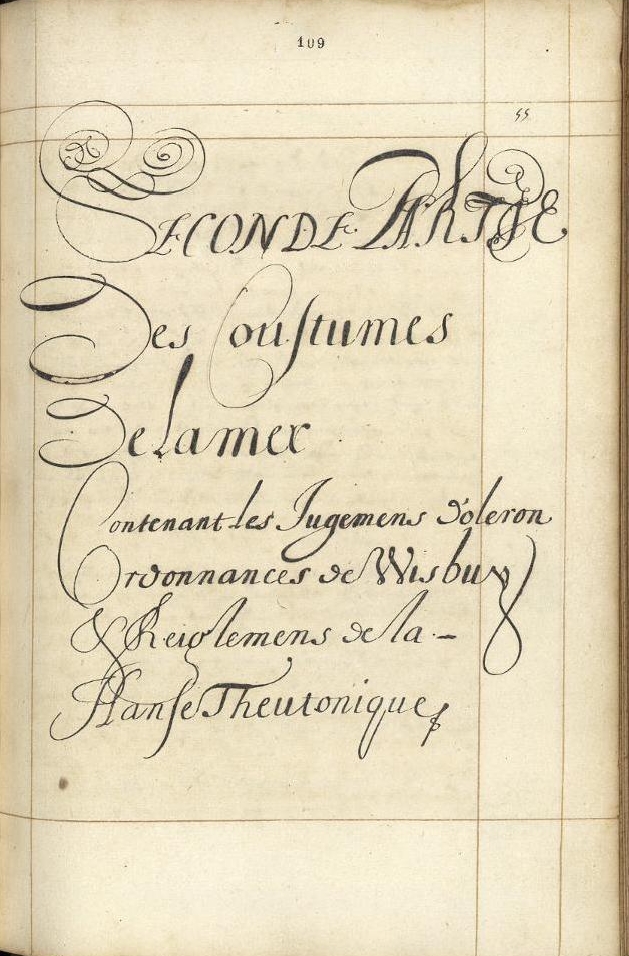 109
55
SECONDE PARTIE
Des Coustumes
De la mer
Contenant les Jugemens d'oleron
Ordonnances de Wisbuy
& Reiglemens de la
Hanse Theutonique